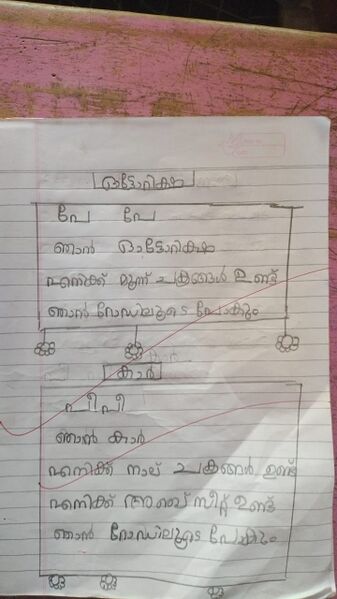 ഓട്ടോറിക്ഷ
പേ പേ
ഞാൻ ഓട്ടോറിക്ഷ
എനിക്ക് മൂന്ന് ചക്രങ്ങൾ ഉണ്ട്
ഞാൻ റോഡിലൂടെ പോകും
കാർ
പീ പീ
ഞാൻ കാർ
എനിക്ക് നാല് ചക്രങ്ങൾ ഉണ്ട്
എനിക്ക് അഞ്ച് സീറ്റ് ഉണ്ട്
ഞാൻ റോഡിലൂടെ പോകും